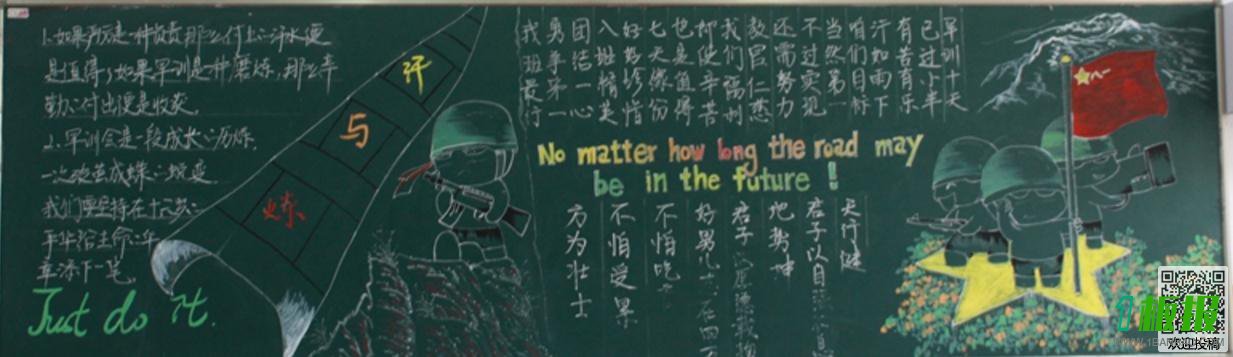 1.如果再苦是一种收费那么付出心汗水便
是值得，如果军训是一种磨炼，那么辛
勤心付出便是收获。
2.军训会是一段成长心历炼，
一次破茧成蝶心蜕变
我们要坚持在十六岁心
年华给生命心年
章添下一笔。
Just do it.
汗
与
炼
军训十天
已过小半
有苦有乐
汗如雨下
咱们目标
当然第一
不过实现
还需努力
教官仁慈
我们福利
即使辛苦
也是值得
七天缘份
好好珍惜
入班精英
团结一心
勇争第一
我班最行
No matter how long the road may
be in the future !
天行健
君子以自
地势坤
君子
好男儿
不怕吃
不怕受累
方为壮士
八一
板报
欢迎投稿